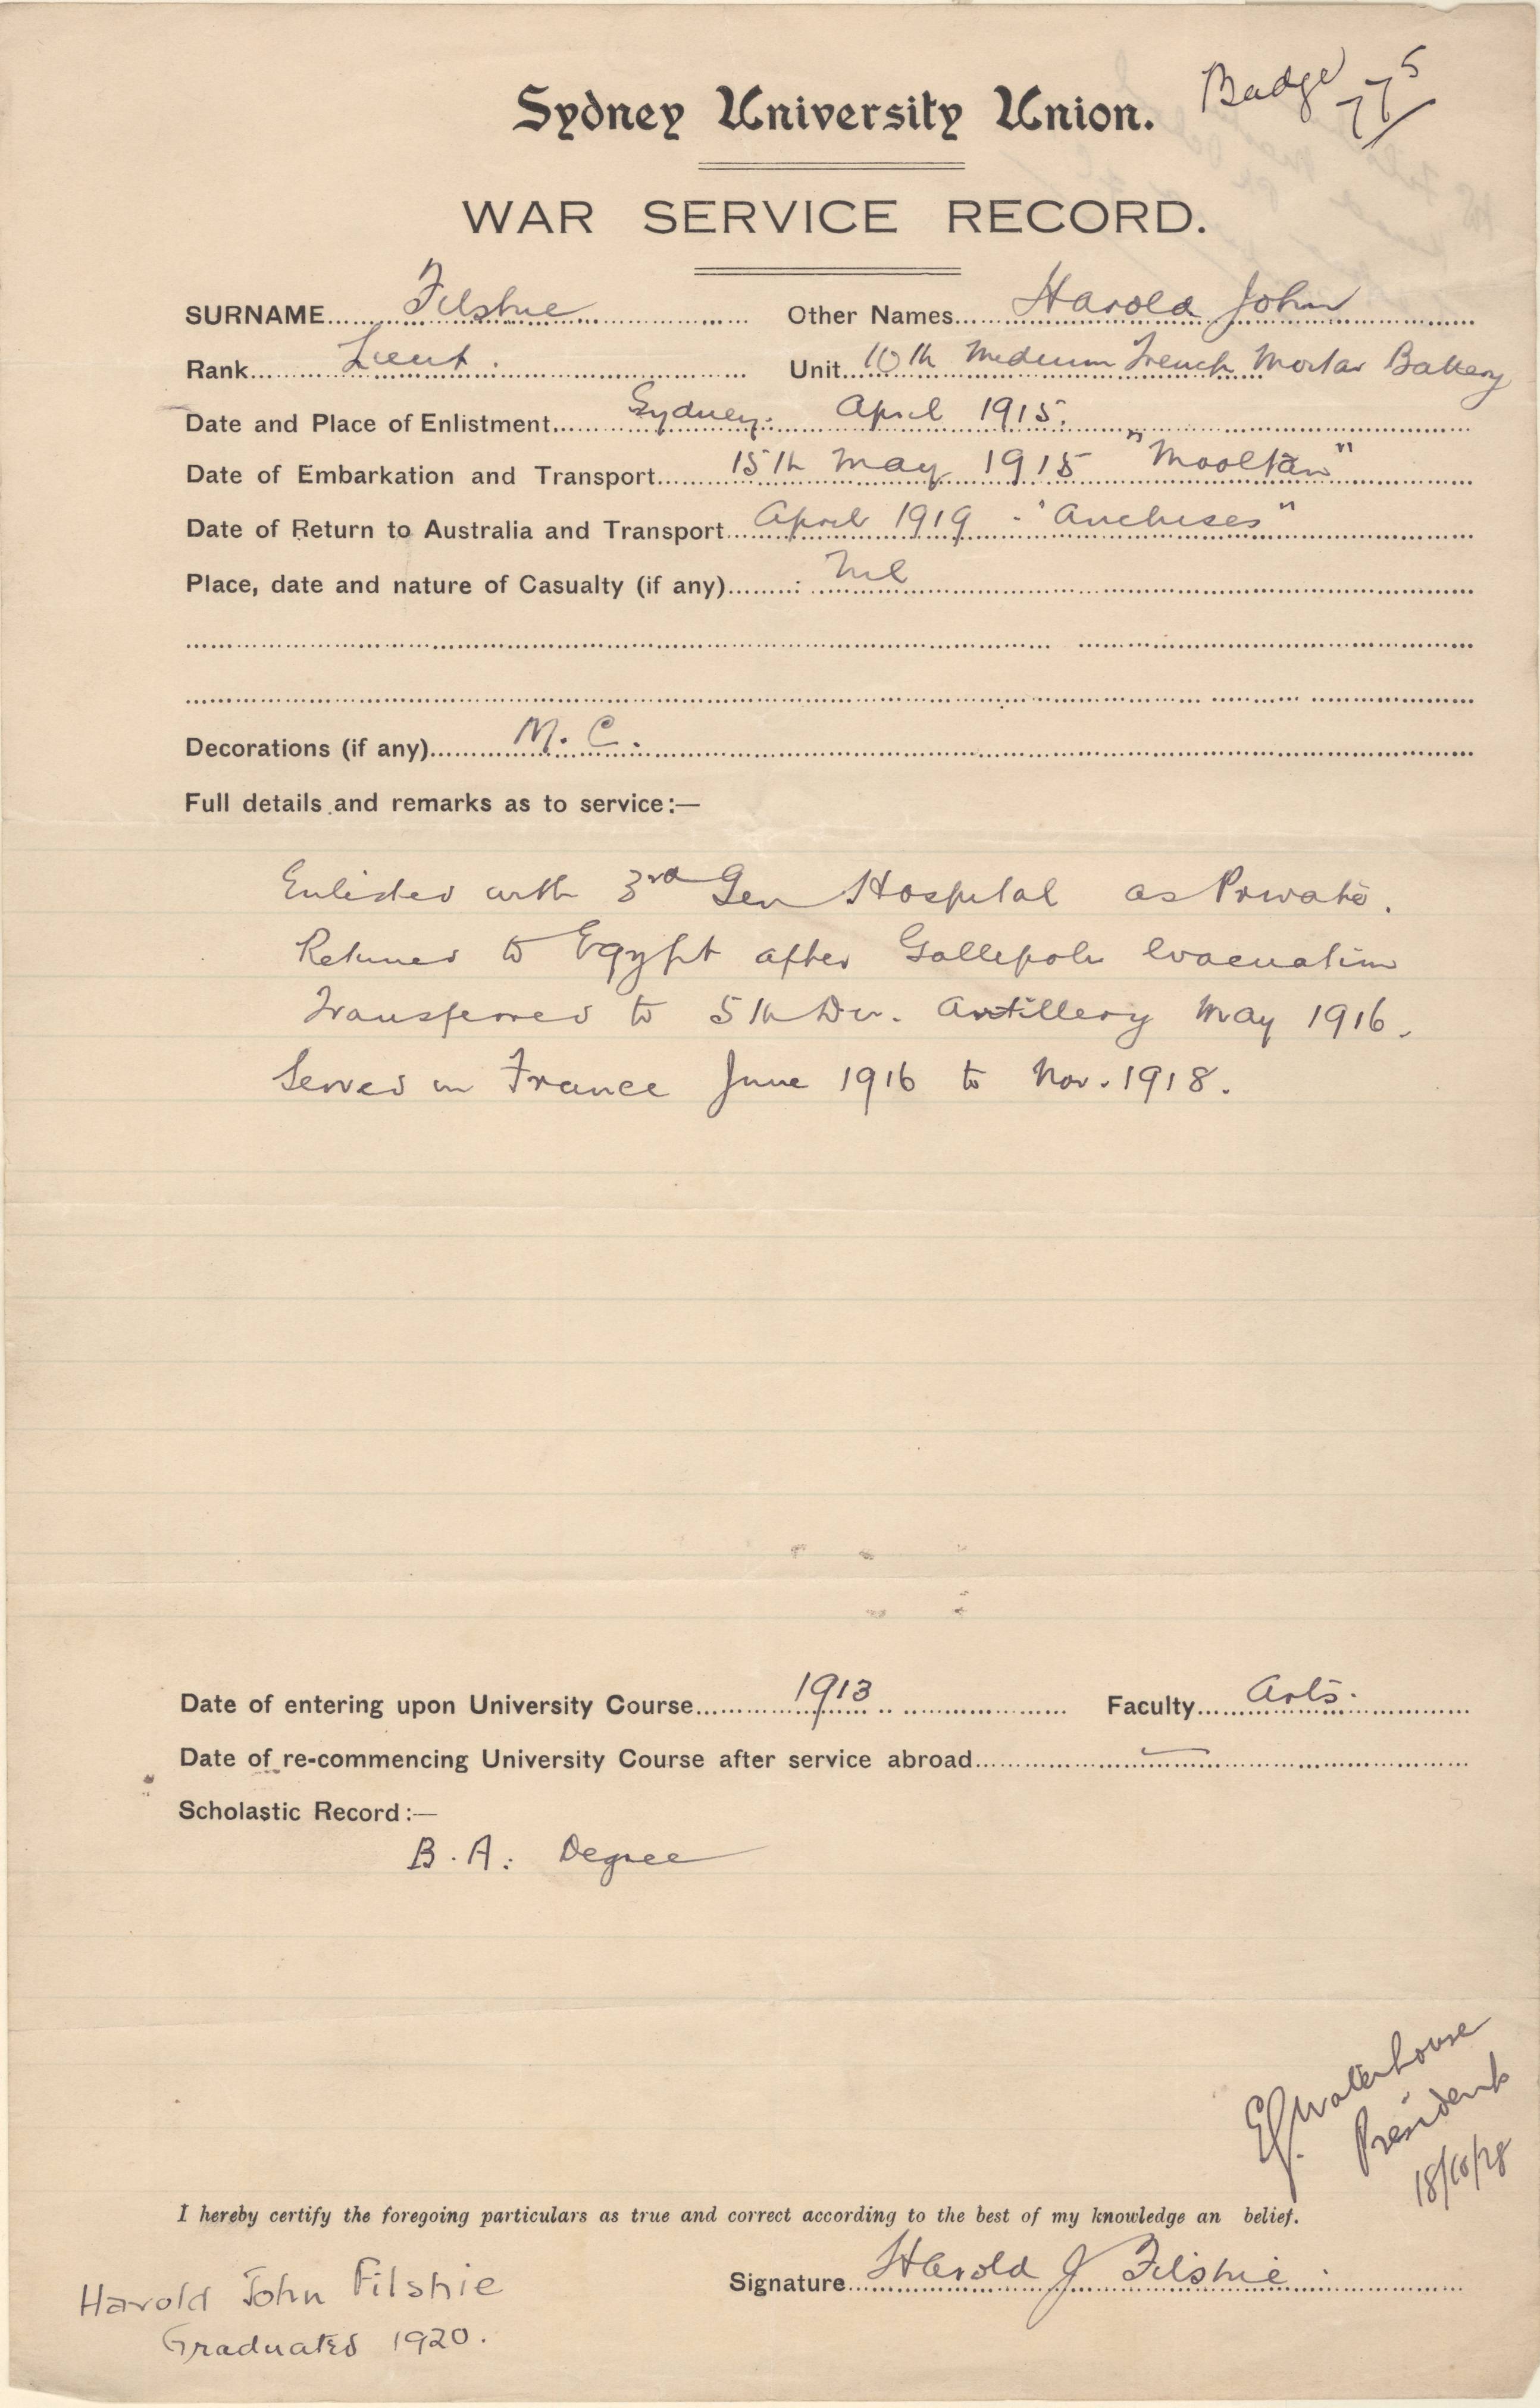 Sydney University Union.
Badge 775
WAR SERVICE RECORD.
SURNAME Filshie Other Names Harold John
Rank Lieut. Unit 10th Medium Trench Mortar Battery
Date and Place of Enlistment Sydney. April 1915.
Date of Embarkation and Transport 15th May 1915 "Mooltan"
Date of Return to Australia and Transport April 1919 - "Anchises"
Place, date and nature of Casualty (if any) Nil
Decorations (if any) M. C.
Full details and remarks as to service:—
Enlisted with 3rd Gen Hospital as Private.
Returned to Egypt after Gallipoli evacuation
Transferred to 5th Div. Artillery May 1916.
Served in France June 1916 to Nov. 1918.
Date of entering upon University Course 1913 Faculty Arts.
Date of re-commencing University Course after service abroad —
Scholastic Record:—
B.A. Degree
Waterhouse
President
18/10/28
I hereby certify the foregoing particulars as true and correct according to the best of my knowledge an belief.
Signature Harold J Filshie
Harold John Filshie
Graduated 1920.